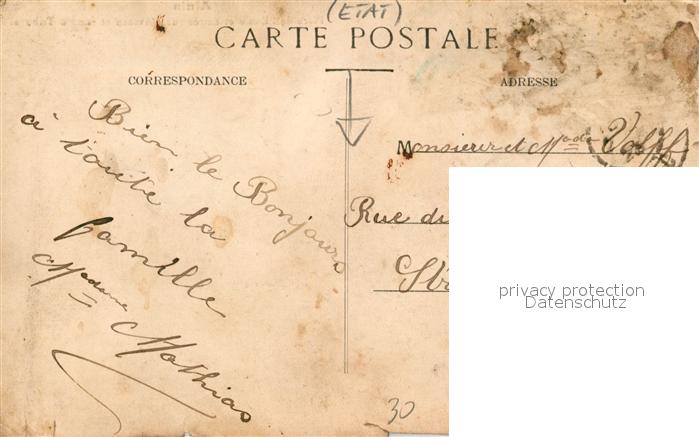 (ETAT)
CARTE POSTALE
CORRESPONDANCE
ADRESSE
Bien le Bonjours
à toute la
famille
Madame Mathias
Monsieur et Made
Rue du
privacy protection
Datenschutz
30